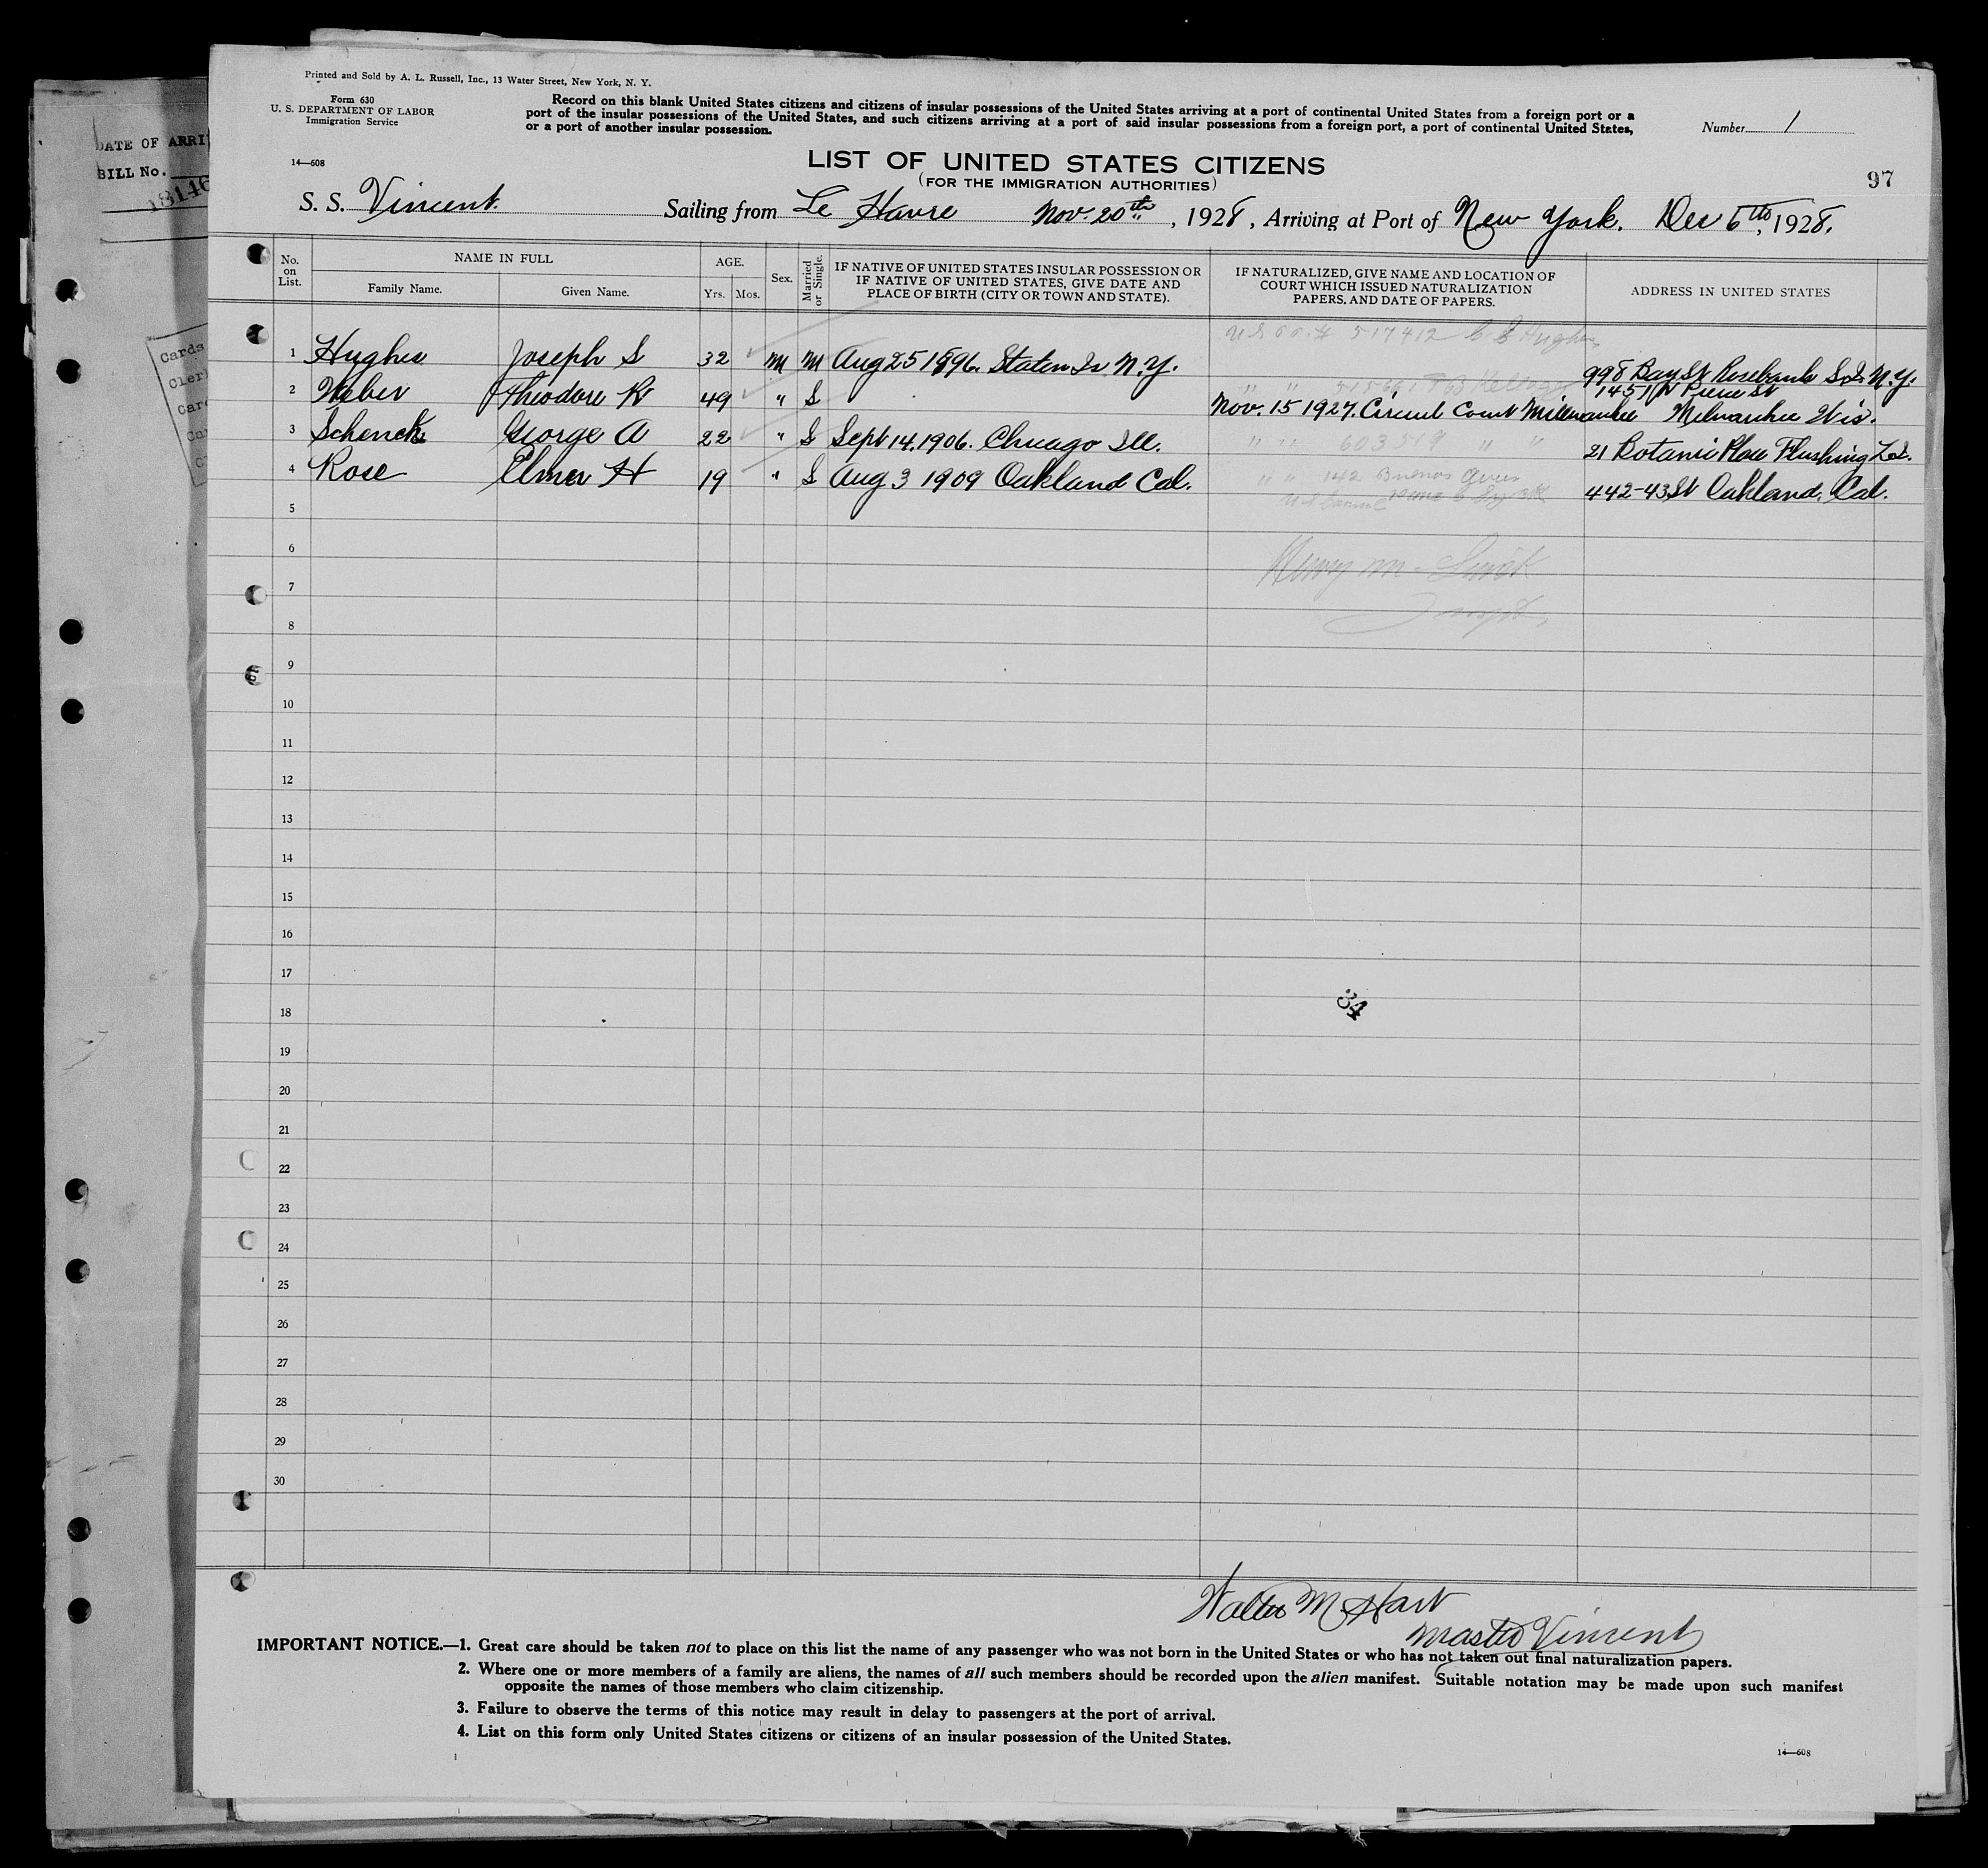 DATE OF ARRI
BILL No.
Cards
Printed and Sold by A. L. Russell, Inc., 13 Water Street, New York, N. Y.
Form 630
U. S. DEPARTMENT OF LABOR
Immigration Service
14—608
Record on this blank United States citizens and citizens of insular possessions of the United States arriving at a port of continental United States from a foreign port or a
port of the insular possessions of the United States, and such citizens arriving at a port of said insular possessions from a foreign port, a port of continental United States,
or a port of another insular possession.
Number 1
LIST OF UNITED STATES CITIZENS
(FOR THE IMMIGRATION AUTHORITIES)
97
S. S. Vincent. Sailing from Le Havre Nov. 20th, 1928, Arriving at Port of New York. Dec 6th, 1928.
No. on List.
NAME IN FULL
Family Name.
Given Name.
AGE.
Yrs.
Mos.
Sex.
Married or Single.
IF NATIVE OF UNITED STATES INSULAR POSSESSION OR
IF NATIVE OF UNITED STATES, GIVE DATE AND
PLACE OF BIRTH (CITY OR TOWN AND STATE).
IF NATURALIZED, GIVE NAME AND LOCATION OF
COURT WHICH ISSUED NATURALIZATION
PAPERS, AND DATE OF PAPERS.
ADDRESS IN UNITED STATES
517412 Hughes
1 Hughes Joseph S 32 M M Aug 25 1896. Staten Is. N.Y. 998 Bay St Rosebank S.I. N.Y.
Kellogg
2 Weber Theodore R 49 " S Nov. 15 1927. Circuit Court Milwaukee 1451 N Pierce St Milwaukee Wis.
3 Schenck George A 22 " S Sept 14. 1906. Chicago Ill. " " 603519 " " 21 Botanic Place Flushing L.I.
4 Rose Elmer H 19 " S Aug 3 1909 Oakland Cal. " " 142 Buenos Aires 442-43 St Oakland. Cal.
5
6
7
8
9
10
11
12
13
14
15
16
17
34
18
19
20
21
22
23
24
25
26
27
28
29
30
Walter M Hart
Master Vincent
IMPORTANT NOTICE.—1. Great care should be taken not to place on this list the name of any passenger who was not born in the United States or who has not taken out final naturalization papers.
2. Where one or more members of a family are aliens, the names of all such members should be recorded upon the alien manifest. Suitable notation may be made upon such manifest
opposite the names of those members who claim citizenship.
3. Failure to observe the terms of this notice may result in delay to passengers at the port of arrival.
4. List on this form only United States citizens or citizens of an insular possession of the United States.
14—608